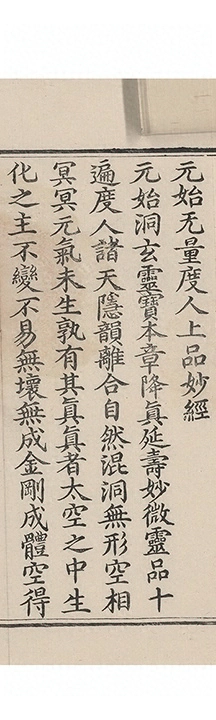 元始无量度人上品妙經
元始洞玄靈寶本章降真延壽妙微靈品十
遍度人諸天隱韻離合自然混洞無形空相
冥冥元氣未生孰有其真真者太空之中生
化之主不變不易無壞無成金剛成體空得